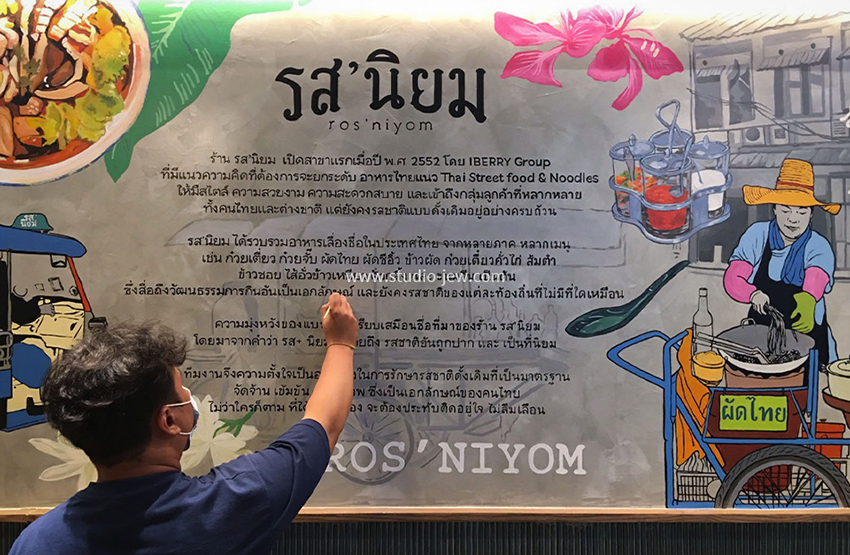 รส'นิยม
ros'niyom
ร้าน รส'นิยม เปิดสาขาแรกเมื่อปี พ.ศ 2552 โดย IBERRY Group
ที่มีแนวความคิดที่ต้องการจะยกระดับ อาหารไทยแนว Thai Street food & Noodles
ให้มีสไตล์ ความสวยงาม ความสะดวกสบาย และเข้าถึงกลุ่มลูกค้าที่หลากหลาย
ทั้งคนไทยและต่างชาติ แต่ยังคงรสชาติแบบดั้งเดิมอยู่อย่างครบถ้วน
รส'นิยม ได้รวบรวมอาหารเลื่องชื่อในประเทศไทย จากหลายภาค หลากเมนู
เช่น ก๋วยเตี๋ยว ก๋วยจั๊บ ผัดไทย ผัดซีอิ๊ว ข้าวผัด ก๋วยเตี๋ยวคั่วไก่ ส้มตำ
ข้าวซอย ไส้อั่วข้าวเหนียว
www.studio-jew.com
ซึ่งสื่อถึงวัฒนธรรมการกินอันเป็นเอกลักษณ์ และยังคงรสชาติของแต่ละท้องถิ่นที่ไม่มีที่ใดเหมือน
ความมุ่งหวังของแบรนด์ เปรียบเสมือนชื่อที่มาของร้าน รส'นิยม
โดยมาจากคำว่า รส+ นิยม ถึง รสชาติอันถูกปาก และ เป็นที่นิยม
ทีมงานจึงความตั้งใจเป็น ในการรักษารสชาติดั้งเดิมที่เป็นมาตรฐาน
จัดจ้าน เข้มข้น ซึ่งเป็นเอกลักษณ์ของคนไทย
ไม่ว่าใครก็ตาม ที่ได้ จะต้องประทับติดอยู่ใจ ไม่ลืมเลือน
ROS'NIYOM
นิยม
ผัดไทย